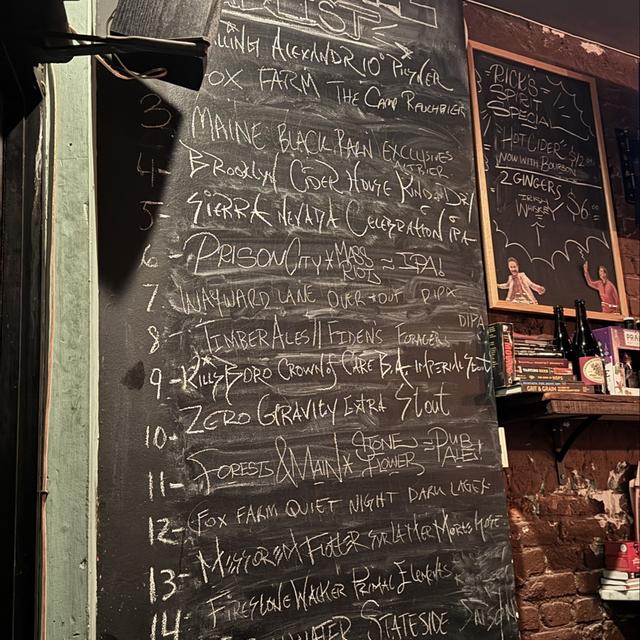 LIST
ALEXANDR 10° PILSNER
FOX FARM THE CAMP RAUCHBIER
3- MAINE BLACK PALN EXCLUSIVES
ALTBIER
4- BROOKLYN CIDER HOUSE KIND OF DRY
5- SIERRA NEVADA CELEBRATION IPA
6- PRISON CITY X MASS RIOTS = IPA!
7 WAYWARD LANE OVER + OUT DIPA
8- TIMBER ALES // FIDENS FORAGERS DIPA
9- KILLS BORO CROWN OF CARE B.A IMPERIAL STOUT
10- ZERO GRAVITY EXTRA STOUT
11- FOREST & MAIN X STONE FLOWER = PUB ALE!
12- FOX FARM QUIET NIGHT DARK LAGER
13- FLOTTER SUR LA MER
14 FIRESTONE WALKER PRIMAL ELEMENTS
STATESIDE SAISON
RICK'S
SPIRIT
SPECIAL
"HOT CIDER" $12.00
NOW WITH BOURBON
2 GINGERS
IRISH
WHISKEY
$6.00
GRIT & GRAIN